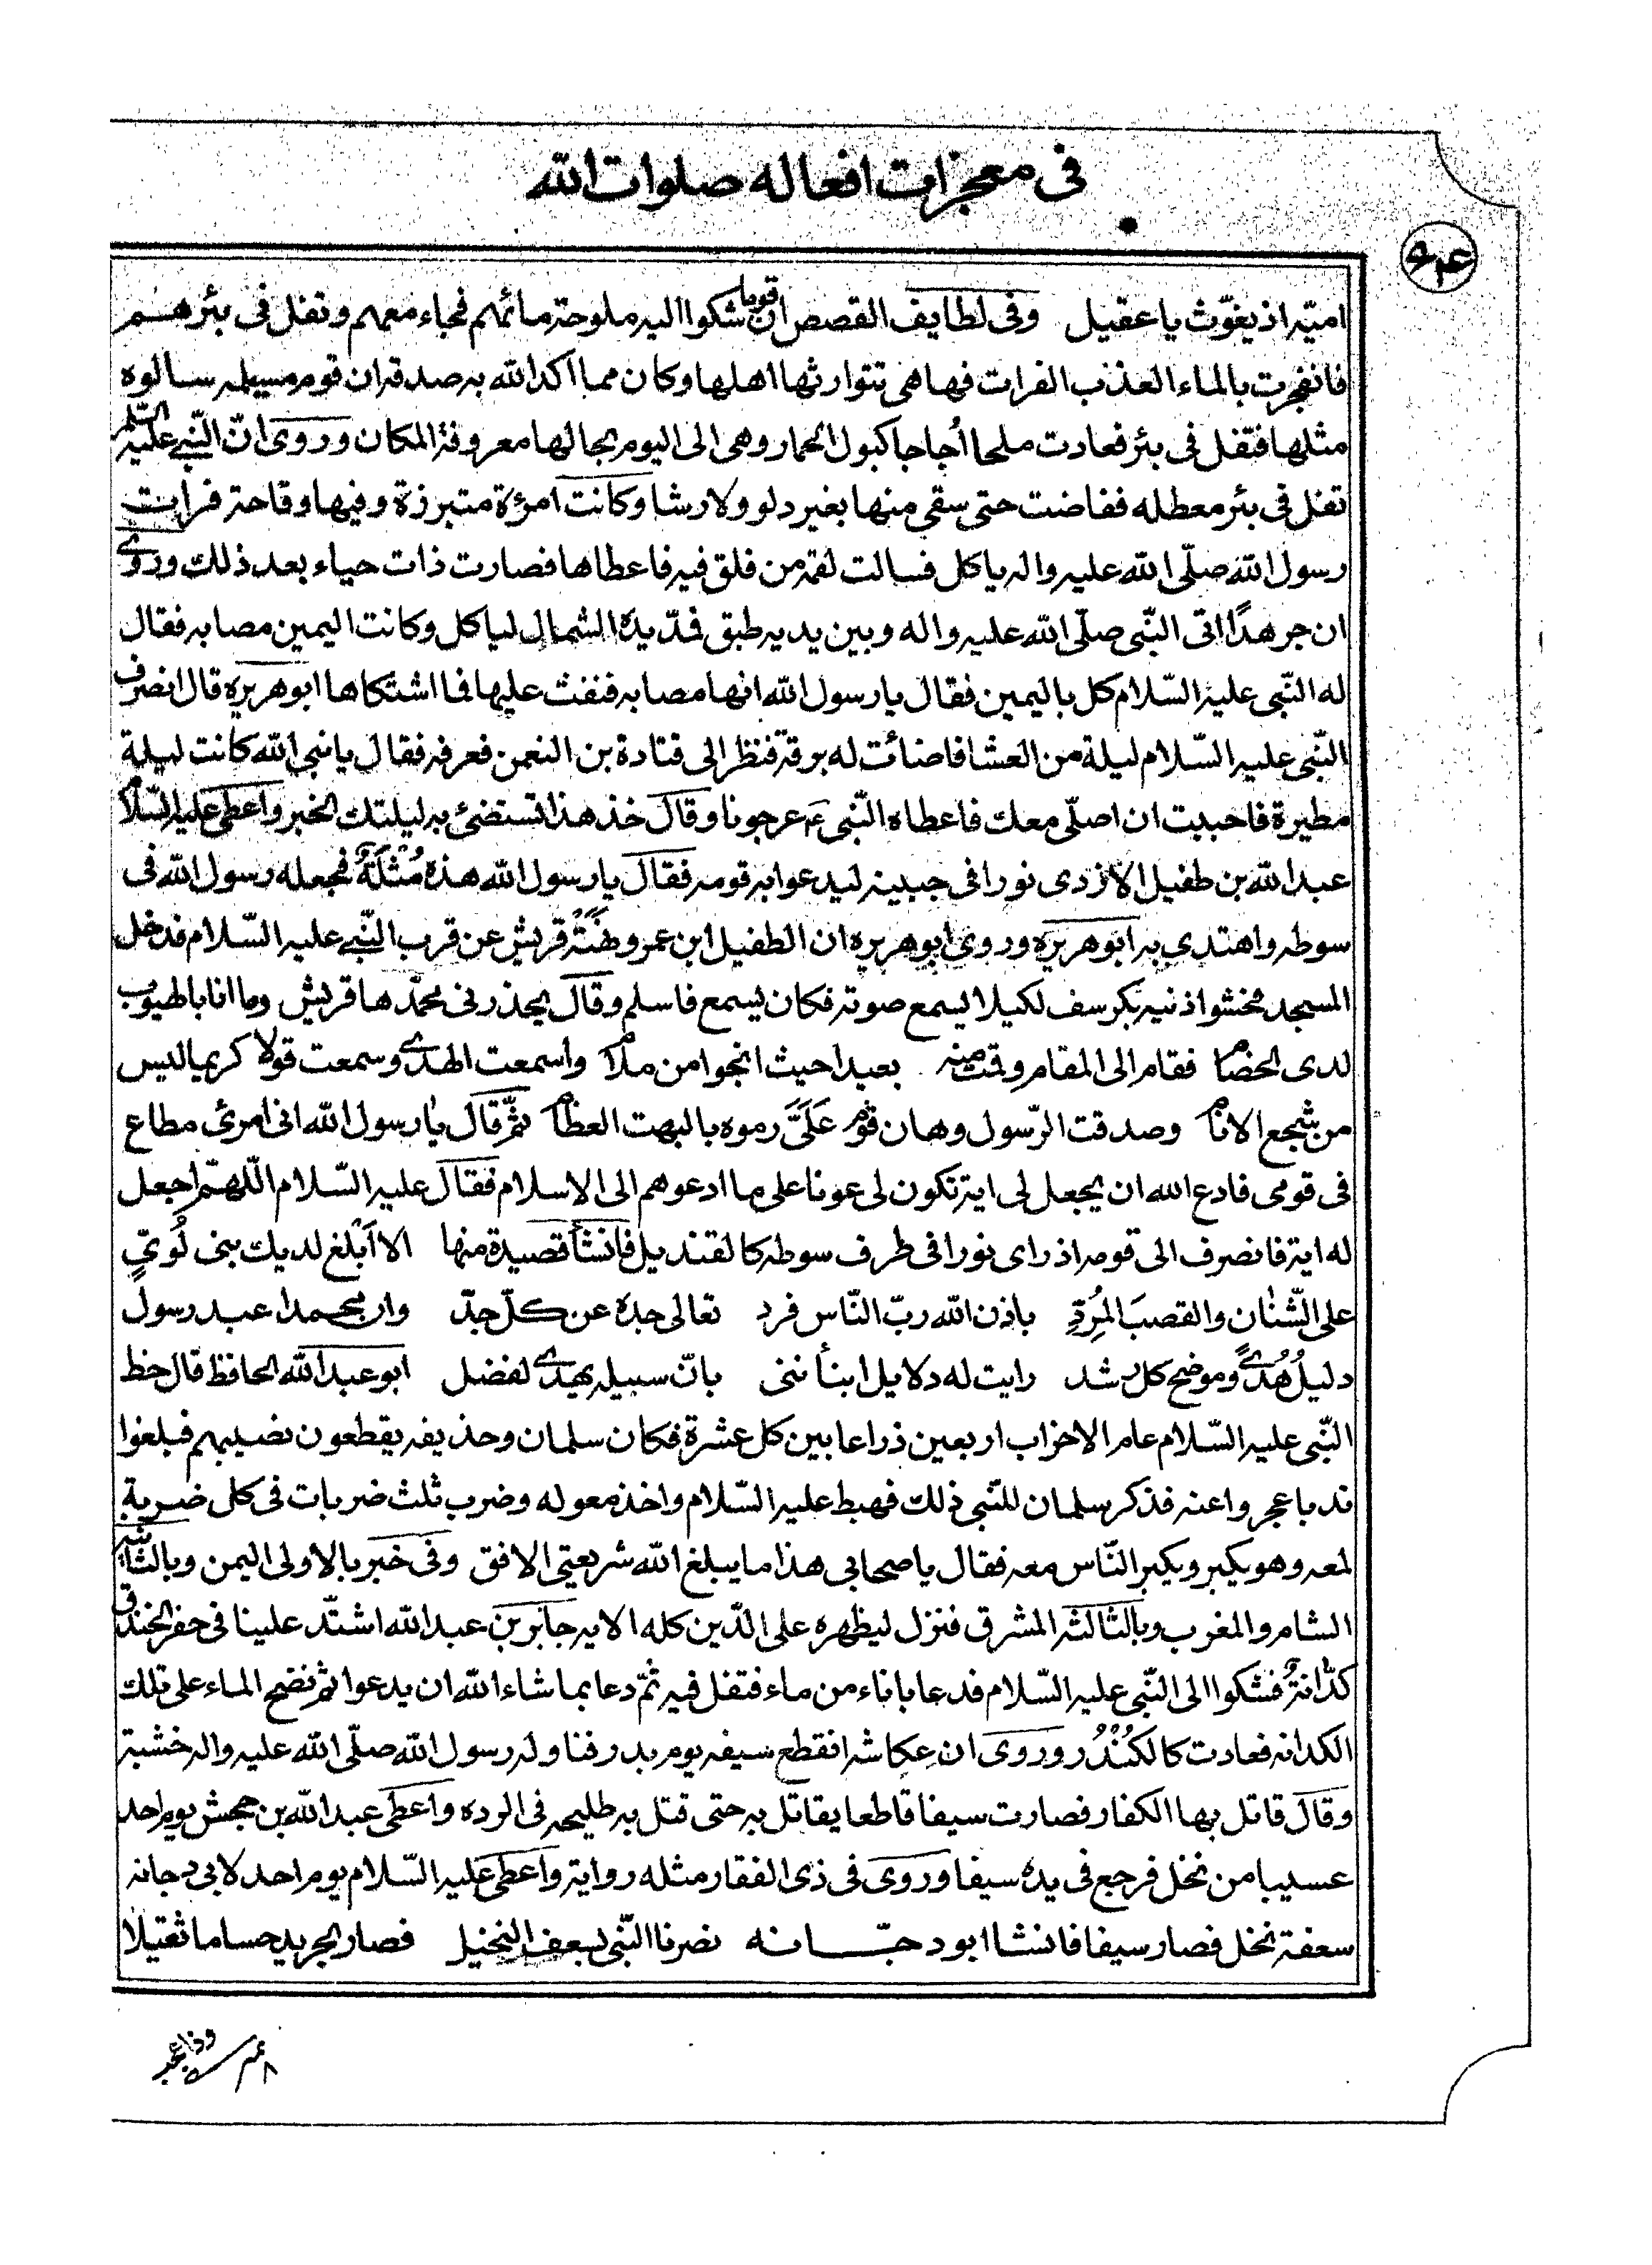 فى معجزات افعاله صلوات الله
امیّه اذ یغوّث یا عقیل وفى لطایف القصص ان قوما شكوا الیه ملوحة مائهم فجاء معهم وتفل فى بئرهم
فانفجرت بالماء العذب الفرات فها هى تتوارثها اهلها وكان مما اكد الله به صدقه ان قوم مسیلمه سالوه
مثلها فتفل فى بئر فعادت ملحا اُجاجا كبول الحمار وهى الى الیوم بحالها معروفة المكان وروى انّ النّبى علیه السّلم
تفل فى بئر معطله ففاضت حتى سقى منها بغیر دلو ولا رشا وكانت امرؤة متبرزة وفیها وقاحة فرات
رسول الله صلّى الله علیه واله یاكل فسالت لقمة من فلق فیه فاعطاها فصارت ذات حیاء بعد ذلك وروى
ان جرهدًا اتى النّبى صلّى الله علیه واله وبین یدیه طبق فمدّ یده الشمال لیاكل وكانت الیمین مصابه فقال
له النّبى علیه السّلام كل بالیمین فقال یا رسول الله انها مصابه فنفث علیها فما اشتكاها ابوهریره قال انصرف
النّبى علیه السّلام لیلة من العشا فاضائت له برقة فنظر الى قتادة بن النعمن فعرفه فقال یا نبى الله كانت لیلة
مطیرة فاحببت ان اصلّى معك فاعطاه النّبى ع عرجونا وقال خذ هذا تستضئ به لیلتك الخبر واعطى علیه السّلام
عبد الله بن طفیل الازدى نورا فى جبینه لیدعوا به قومه فقال یا رسول الله هذه مُثْلَةٌ فجعله رسول الله فى
سوطه واهتدى به ابوهریره وروى ابوهریره ان الطفیل ابن عمرو نهته قریش عن قرب النّبى علیه السّلام فدخل
المسجد فحشوا اذنیه بكرسف لكیلا یسمع صوته فكان یسمع فاسلم وقال یحذرنى محمّدها قریش وما انا بالهیوب
لدى الخصام فقام الى المقام وقمت منه بعیدا حیث انجوا من ملام واسمعت الهدى وسمعت قولا كریما لیس
من شجع الانام وصدقت الرّسول وهان قوم عَلَىَّ رموه بالبهت العظام ثمّ قال یا رسول الله انى امرئ مطاع
فى قومى فادع الله ان یجعل لى ایة تكون لى عونا على ما ادعوهم الى الاسلام فقال علیه السّلام اللّهمّ اجعل
له ایة فانصرف الى قومه اذ راى نورا فى طرف سوطه كالقندیل فانشأ قصیدة منها الا اَبْلغ لدیك بنى لُوىّ
على الشّنان والقصب المُرِدّ باذن الله ربّ النّاس فرد تعالى جده عن كلّ جدّ وان محمدا عبد رسول
دلیلُ هُدًى وموضح كل رشد رایت له دلایل انبأتنى بانّ سبیله یهدى لفضل ابو عبد الله الحافظ قال خط
النّبى علیه السّلام عام الاحزاب اربعین ذراعا بین كل عشرة فكان سلمان وحذیفه یقطعون نصیبهم فبلغوا
ندبا عجروا عنه فذكر سلمان للنّبى ذلك فهبط علیه السّلام واخذ معوله وضرب ثلث ضربات فى كل ضربة
لمعه وهو یكبر ویكبر النّاس معه فقال یا صحابى هذا ما یبلغ الله شریعتى الافق وفى خبر بالاولى الیمن وبالثّانیه
الشام والمغرب وبالثالثه المشرق فنزل لیظهره على الدّین كله الایه جابر بن عبد الله اشتدّ علینا فى حفر الخندق
كدّانةٌ فشكوا الى النّبى علیه السّلام فدعا باناء من ماء فتفل فیه ثمّ دعا بما شاء الله ان یدعوا ثم نضح الماء على تلك
الكدانه فعادت كالكُنْدُر وروى ان عكاشه انقطع سیفه یوم بدر فناوله رسول الله صلّى الله علیه واله خشبة
وقال قاتل بها الكفار فصارت سیفا قاطعا یقاتل به حتى قتل به طلیحه فى الرده واعطى عبد الله بن جحش یوم احد
عسیبا من نخل فرجع فى یده سیفا وروى فى ذى الفقار مثله روایة واعطى علیه السّلام یوم احد لابى دجانه
سعفة نخل فصار سیفا فانشا ابو دجّانه نصرنا النّبى بسعف النخیل فصار الجرید حساما ثقیلا